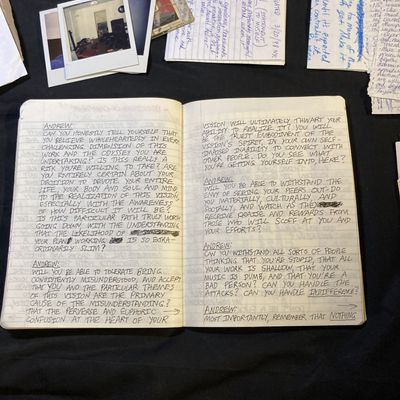 ANDREW:
CAN YOU HONESTLY TELL YOURSELF THAT
YOU BELIEVE WHOLEHEARTEDLY IN EVERY
CHALLENGING DIMENSION OF THIS
WORK AND THE ODYSSEY YOU ARE
UNDERTAKING? IS THIS REALLY A
RISK YOU'RE WILLING TO TAKE? ARE
YOU ENTIRELY CERTAIN ABOUT YOUR
DECISION TO DEVOTE YOUR ENTIRE
LIFE, YOUR BODY AND SOUL AND MIND,
TO THE REALIZATION OF THIS VISION,
ESPECIALLY WITH THE AWARENESS
OF HOW DIFFICULT IT WILL BE?
IS THIS PARTICULAR PATH TRULY WORTH
GOING DOWN WITH THE UNDERSTANDING
THAT THE LIKELIHOOD OF
YOUR PLAN WORKING IS SO EXTRA-
ORDINARILY SLIM?
ANDREW:
WILL YOU BE ABLE TO TOLERATE BEING
CONSISTENTLY MISUNDERSTOOD, AND ACCEPT
THAT YOU AND THE PARTICULAR THEMES
OF THIS VISION ARE THE PRIMARY
CAUSE OF THE MISUNDERSTANDING?
THAT THE PERVERSE AND EUPHORIC
CONFUSION AT THE HEART OF YOUR
VISION WILL ULTIMATELY THWART YOUR
ABILITY TO REALIZE IT? YOU WILL
BE THE EMBODIMENT OF THE
VISION'S SPIRIT, IN YOUR OWN SELF-
IMPOSED INABILITY TO CONNECT WITH
OTHER PEOPLE. DO YOU SEE WHAT
YOU'RE GETTING YOURSELF INTO, HERE?
ANDREW:
WILL YOU BE ABLE TO WITHSTAND THE
ENVY OF SEEING YOUR PEERS OUT-DO
YOU MATERIALLY, CULTURALLY, AND
SOCIALLY, AND WATCH AS THE
RECEIVE PRAISE AND REWARDS FROM
THOSE WHO WILL SCOFF AT YOU AND
YOUR EFFORTS?
ANDREW:
CAN YOU WITHSTAND ALL SORTS OF PEOPLE
THINKING THAT YOU'RE STUPID, THAT ALL
YOUR WORK IS SHALLOW, THAT YOUR
MUSIC IS DUMB, AND THAT YOU'RE A
BAD PERSON? CAN YOU HANDLE THE
ATTACKS? CAN YOU HANDLE INDIFFERENCE?
ANDREW:
MOST IMPORTANTLY, REMEMBER THAT NOTHING